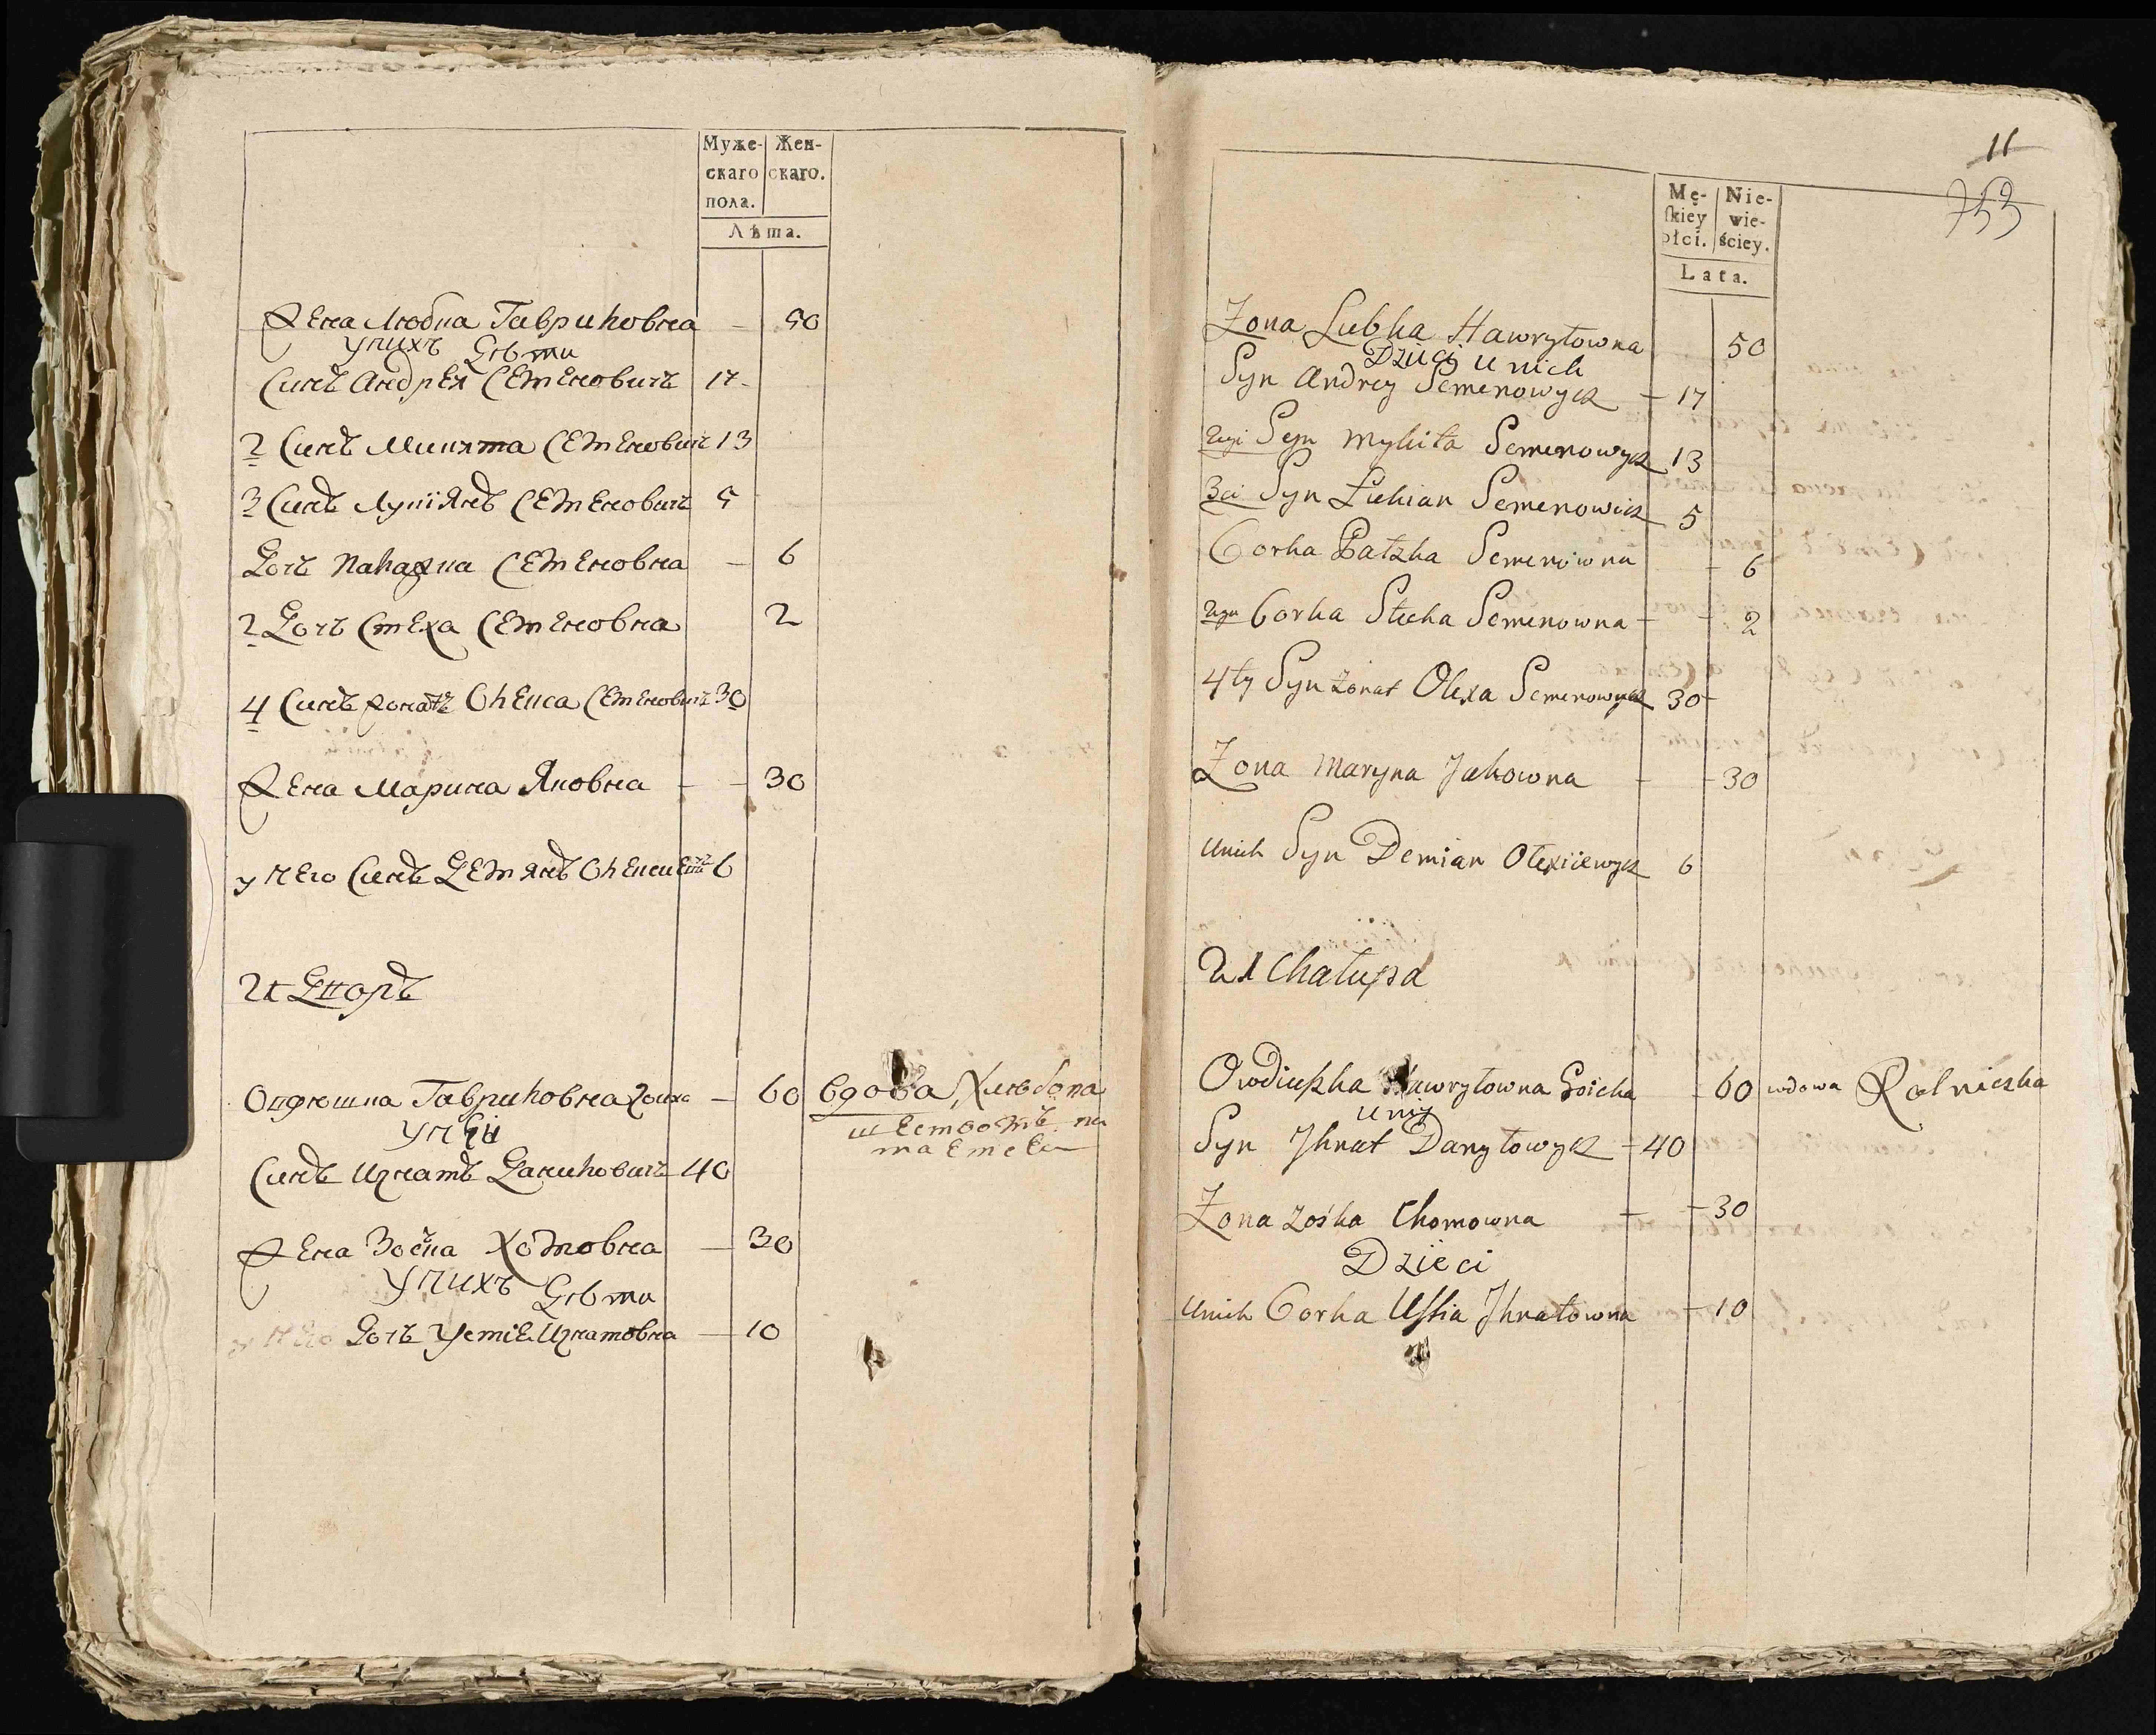 Муже-
скаго
пола.
Жен-
скаго.
Лѣта.
Жена Любка Гавриловна — 50
у нихъ Дѣти
Синъ Андрей Семеновичъ 17
2 Синъ Микита Семеновичъ 13
3 Синъ Лукіянъ Семеновичъ 5
Дочь Палажка Семеновна — 6
2 Дочь Стеха Семеновна 2
4 Синъ жонатъ Олекса Семеновичъ 30
Жена Марина Яковна — — 30
у него Синъ Демянъ Олексиевичъ 6
21 Двора
Овдюшка Гавриловна — 60 вдова, Хлебопа
шеством
у неи
Синъ Игнатъ Даниловичъ 40
Жена Зоська Хомовна — 30
у нихъ Дѣти
у него Дочь Устіе Игнатовна — 10
11
753
Mę-
ſkiey
płci.
Nie-
wie-
ściey.
Lata.
Zona Lubka Hawryłowna 50
Dzieci u nich
Syn Andrey Semenowycz — 17
2gi Syn Mykita Semenowycz 13
3ci Syn Łukian Semenowicz 5
Corka Pałazka Semenowna - 6
2ga Corka Stecha Semenowna - - 2
4ty Syn żonat Olexa Semenowycz 30 -
Zona Maryna Jakowna - - 30
U nich Syn Demian Olexiiewycz 6
21 Chałupa
Owdiuszka Hawryłowna - 60 wdowa Rolniczka
u niy
Syn Ihnat Daryłowycz - 40
Zona Zośka Chomowna - - 30
Dzieci
U nich Corka Uſtia Ihnatowna - 10